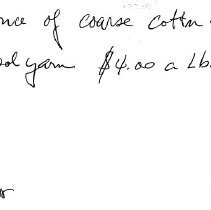 nce of coarse cotton
ool yarn $4.00 a Lb.